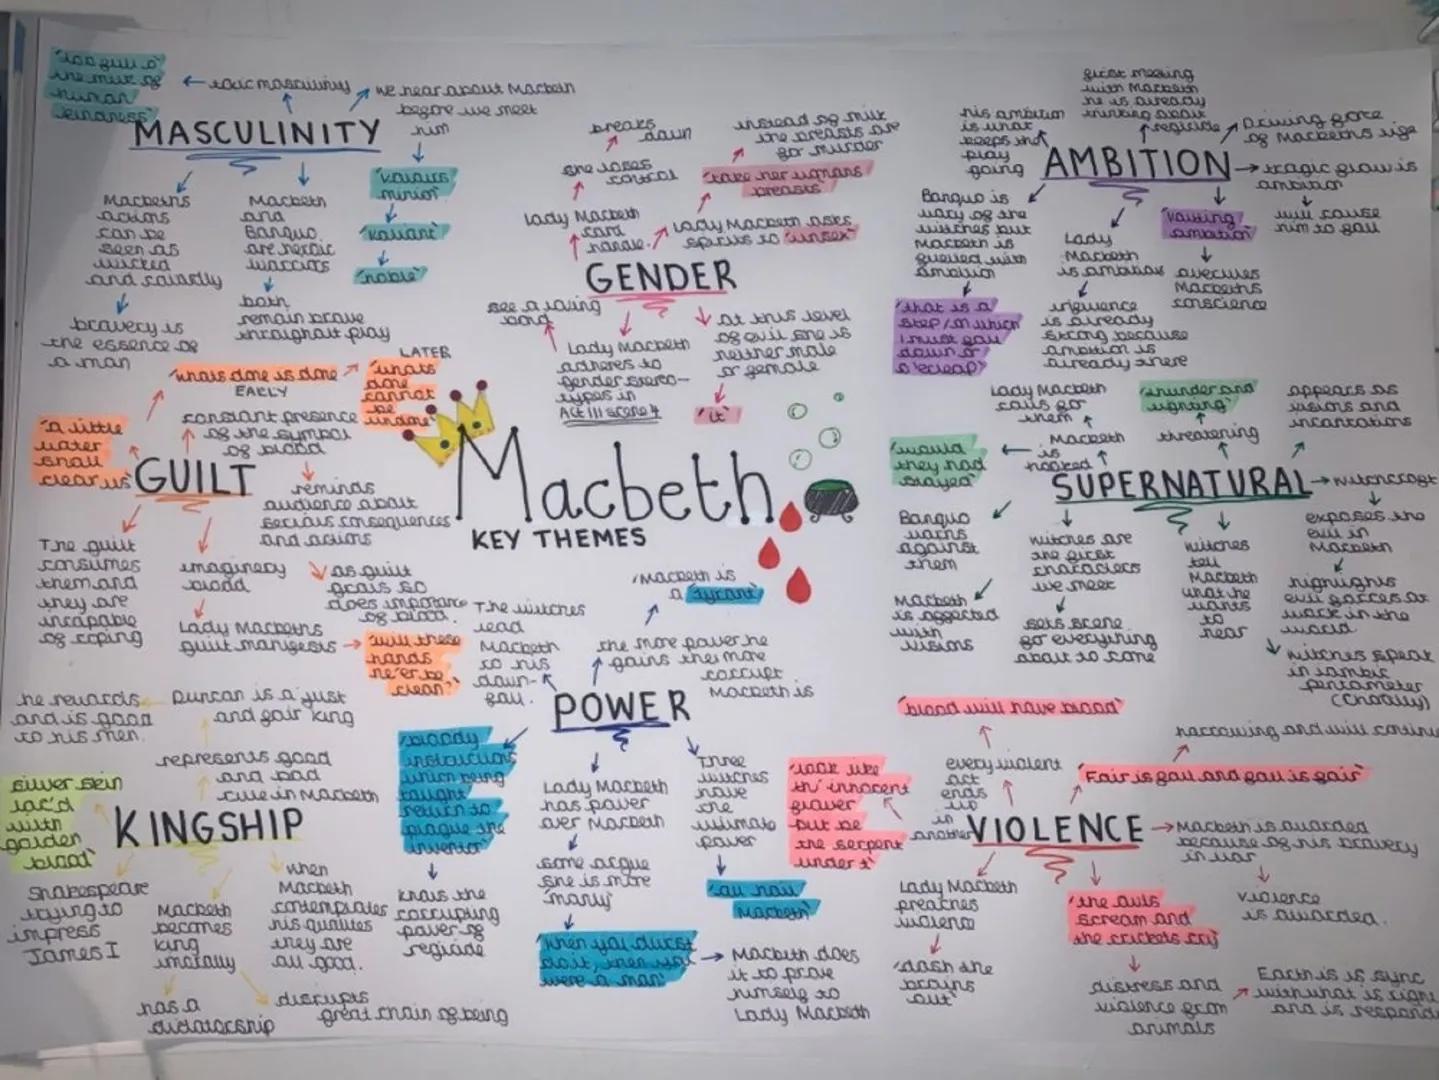 'too full o'
the milk of
human
kindness'
toxic masculinity
we hear about Macbeth
before we meet
him
'valours
minion'
'valiant'
'noble'
MASCULINITY
Macbeths
actions
can be
seen as
wicked
and cowardly
bravery is
the essence of
a man
Macbeth
and
Banquo
are heroic
warriors
both
remain brave
throughout play
breaks
down
she loses
control
Lady Macbeth
cant
handle
instead of milk
the breasts are
for murder
'take her womans
breasts'
Lady Macbeth asks
spirits to 'unsex'
GENDER
see a loving
bond
Lady Macbeth
adheres to
gender stereo-
types in
Act III scene 4
at this level
of evil she is
neither male
or female
'it'
his ambition
is what
keeps the
play
going
first meeting
with Macbeth
he is already
thinking about
regicide
Driving force
of Macbeths life
AMBITION
tragic flaw is
ambition
will cause
him to fall
Banquo is
wary of the
witches but
Macbeth is
fuelled with
ambition
'that is a
step / on which
I must fall
down or
o'erleap'
Lady
Macbeth
is ambitious
influence
is already
strong because
ambition is
already there
'vaulting
ambition'
overrules
Macbeths
conscience
'whats done is done'
EARLY
LATER
'whats
done
cannot
be
undone'
'a little
water
shall
clear us'
constant presence
of the symbol
of blood
GUILT
reminds
audience about
serious consequences
and actions
The guilt
consumes
them and
they are
incapable
of coping
imaginery
blood
Lady Macbeths
guilt manifests
as guilt
grows so
does importance
of blood.
'will these
hands
ne'er be
clean?'
Macbeth
KEY THEMES
Lady Macbeth
calls for
them
Macbeth
is
hooked
'would
they had
stayed'
'thunder and
lightning'
threatening
appears as
visions and
incantations
SUPERNATURAL
witchcraft
exposes the
evil in
Macbeth
highlights
evil forces at
work in the
world
witches speak
in iambic
pentameter
(chorally)
Banquo
warns
against
them
Macbeth
is affected
with
visions
witches are
the first
characters
we meet
sets scene
for everything
about to come
witches
tell
Macbeth
what he
wants
to
hear
The witches
lead
Macbeth
to his
down-
fall.
Macbeth is
a 'tyrant'
the more power he
gains the more
corrupt
Macbeth is
POWER
'bloody
instructions
which being
taught
return to
plague the
inventor'
knows the
corrupting
power of
regicide
Lady Macbeth
has power
over Macbeth
some argue
she is more
'manly'
'when you durst
do it, then you
were a man'
Macbeth does
it to prove
himself to
Lady Macbeth
Three
witches
have
the
ultimate
power
'all hail
Macbeth'
he rewards
and is good
to his men.
Duncan is a just
and fair king
represents good
and bad
rule in Macbeth
'silver skin
lac'd
with
golden
blood'
KINGSHIP
Shakespeare
trying to
impress
James I
Macbeth
becomes
king
has a
dictatorship
disrupts
great chain of being
when
Macbeth
contemplates
his qualities
they are
all good.
'blood will have blood'
every violent
act
ends
up
in
another
harrowing and will
'Fair is foul and foul is fair'
'look like
th' innocent
flower
but be
the serpent
under't'
VIOLENCE
Macbeth is awarded
because of his bravery
in war
violence
is awarded.
Lady Macbeth
preaches
violence
'dash the
brains
out'
'the owls
scream and
the crickets cry'
distress and
violence from
animals
Earth is is sync
with what is right
and is